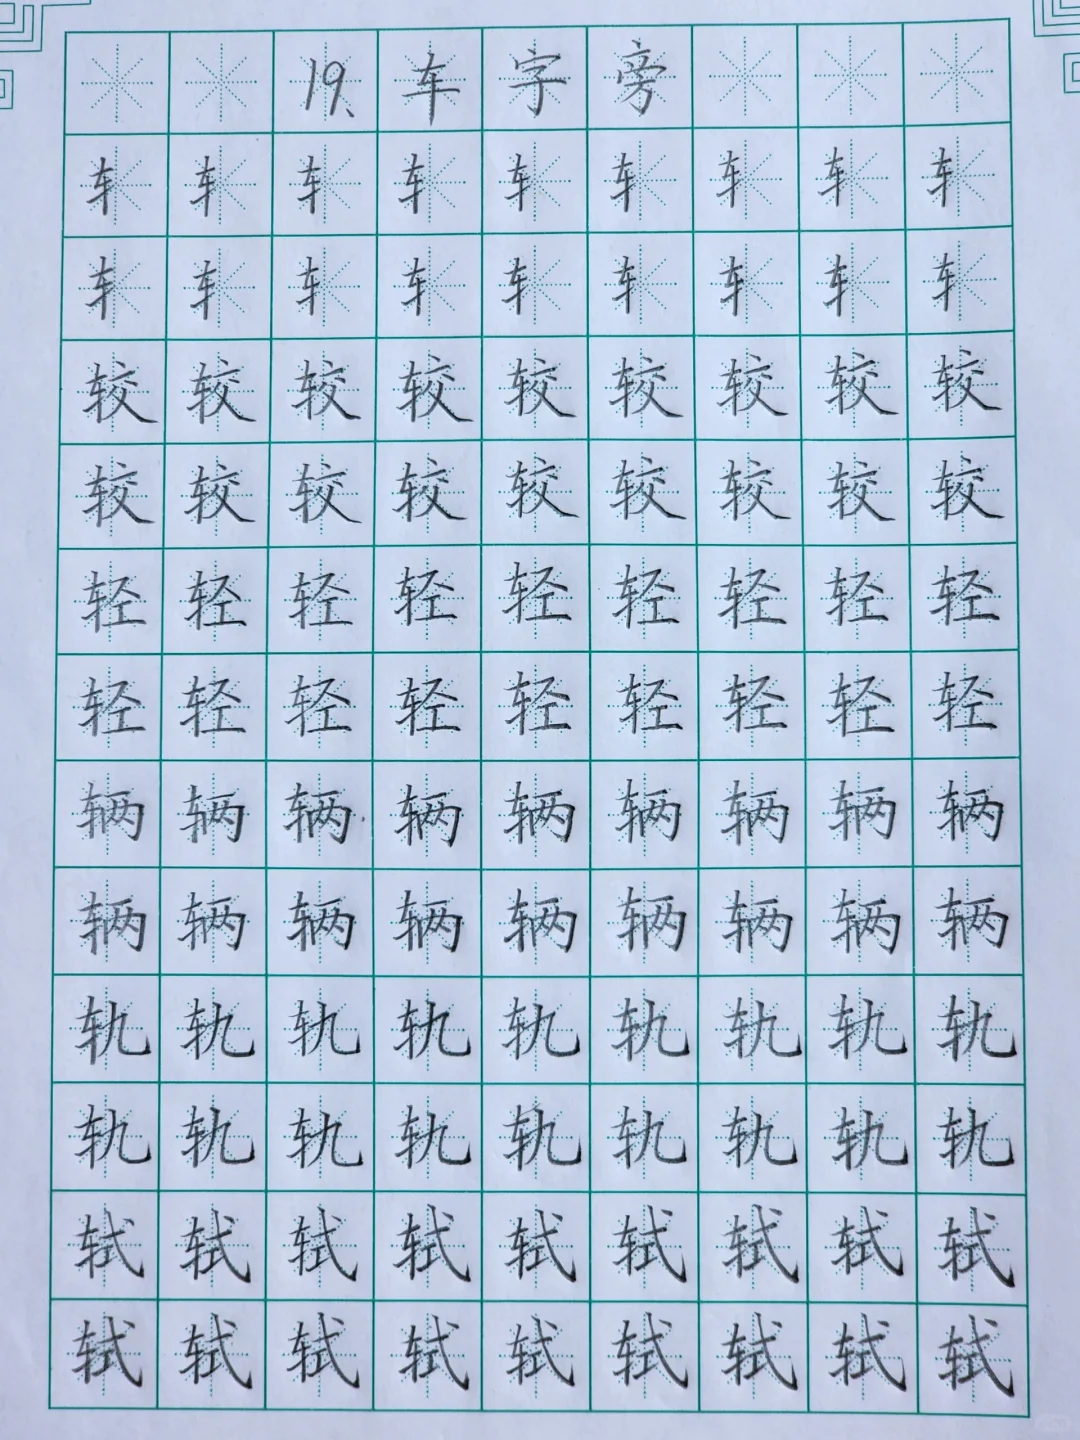 19、车字旁
车车车车车车车车车
车车车车车车车车车
较较较较较较较较较
较较较较较较较较较
轻轻轻轻轻轻轻轻轻
轻轻轻轻轻轻轻轻轻
辆辆辆辆辆辆辆辆辆
辆辆辆辆辆辆辆辆辆
轨轨轨轨轨轨轨轨轨
轨轨轨轨轨轨轨轨轨
轼轼轼轼轼轼轼轼轼
轼轼轼轼轼轼轼轼轼